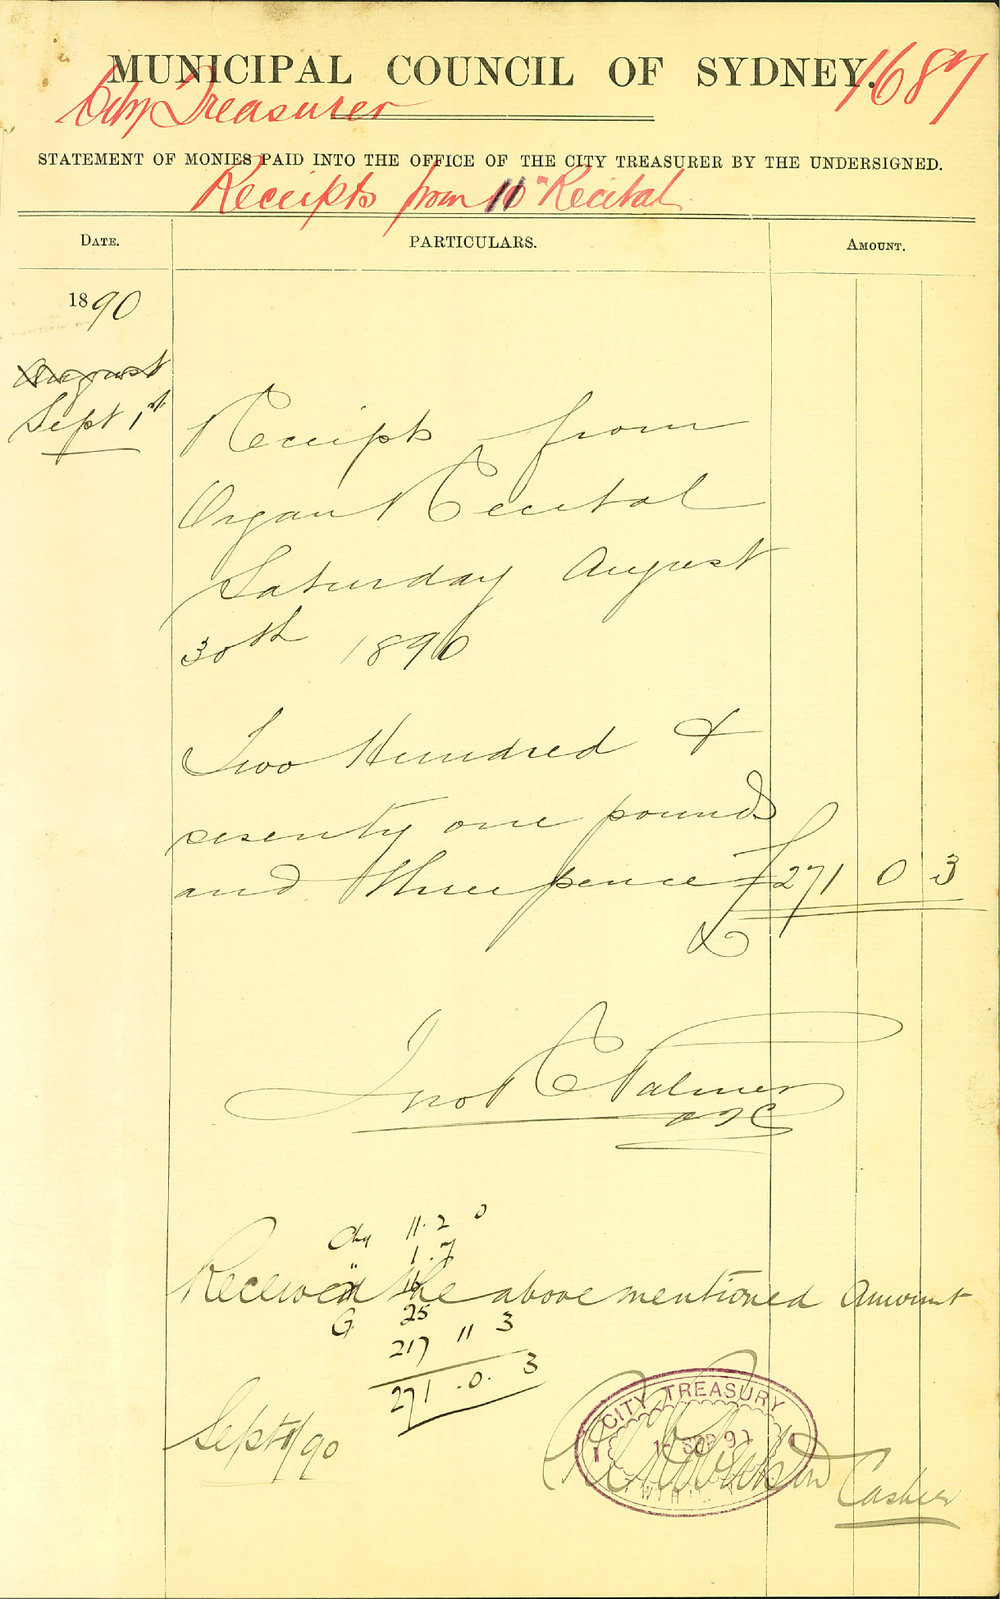 MUNICIPAL COUNCIL OF SYDNEY.
1687
City Treasurer
STATEMENT OF MONIES PAID INTO THE OFFICE OF THE CITY TREASURER BY THE UNDERSIGNED.
Receipts from 11th Recital
DATE. PARTICULARS. AMOUNT.
1890
August
Sept 1st
Receipts from
Organ Recital
Saturday August
30th 1890
Two Hundred &
seventy one pounds
and three pence £271 0 3
Jno E Palmer
Chq 11. 2 0
1. 7
" 16
Received the above mentioned Amount
G 25
217 11 3
271 . 0. 3
Sept 1/90
CITY TREASURY
1 SEP 90
Cashier